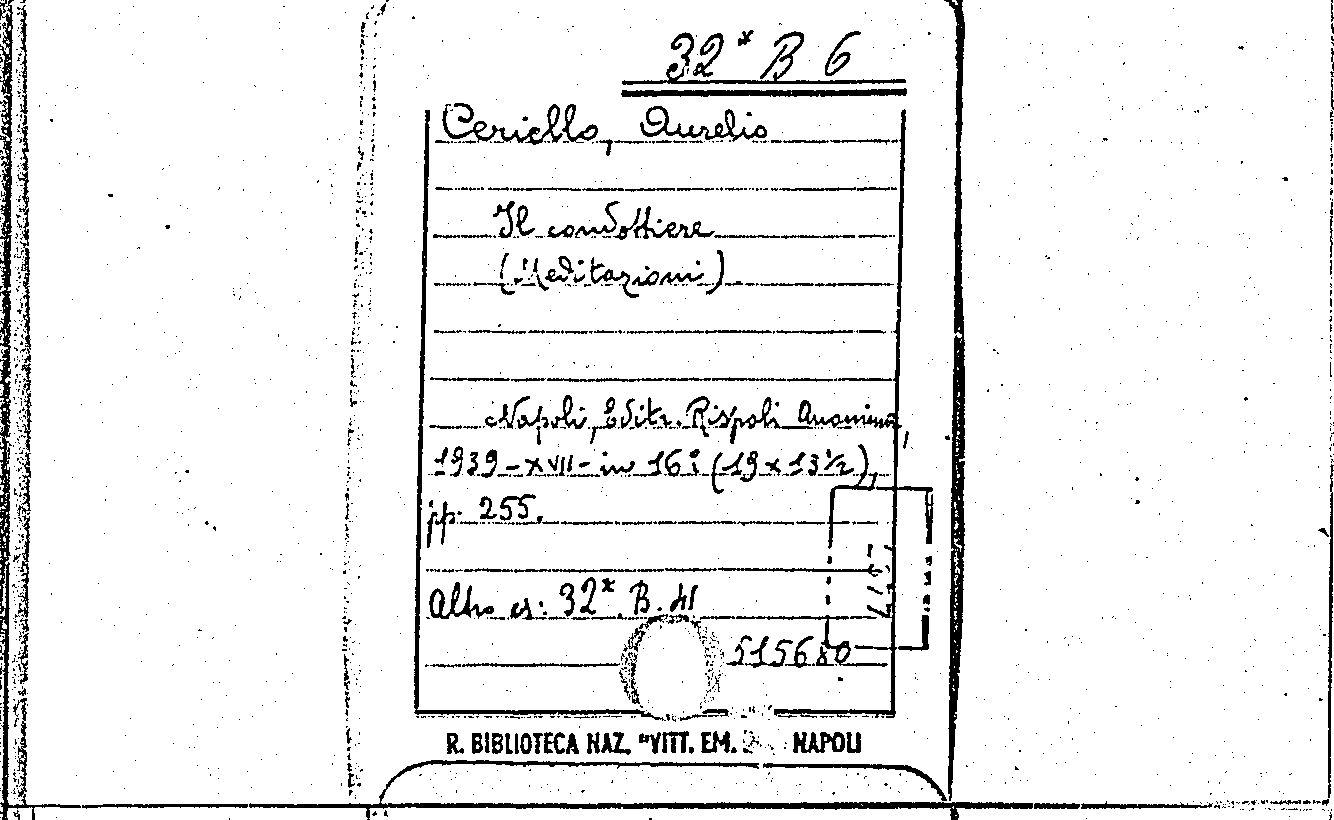 32* B 6
Ceriello, Aurelio
Il condottiere
(Meditazioni)
Napoli, Editr. Rispoli Anonima,
1939-XVII- in 16° (19 x 13½),
pp. 255.
Altro es: 32* B. 41
515680
R. BIBLIOTECA NAZ. "VITT. EM. NAPOLI